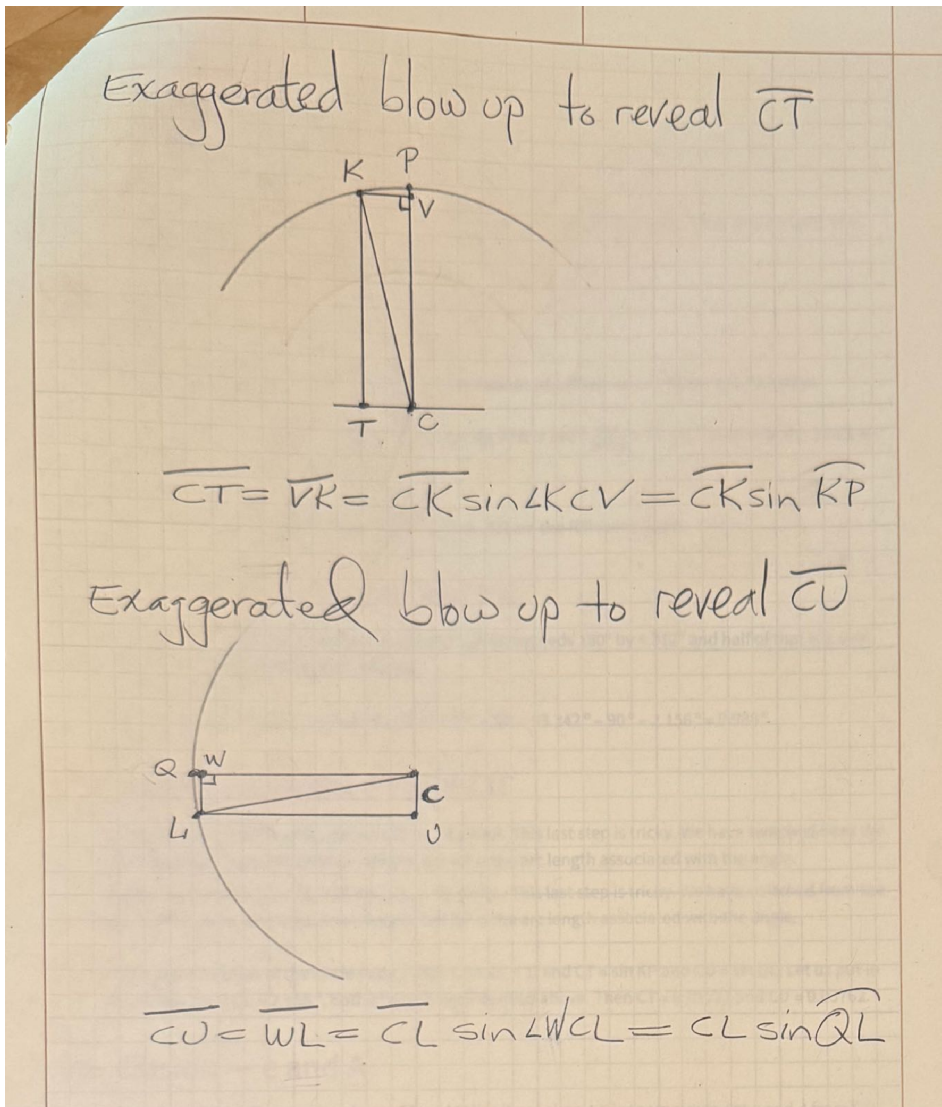 Exaggerated blow up to reveal C̅T̅
P
K
V
T C
C̅T̅ = V̅K̅ = C̅K̅ sin∠KCV = C̅K̅ sin K͡P
Exaggerated blow up to reveal C̅U̅
Q W
C
L U
C̅U̅ = W̅L̅ = C̅L̅ sin∠WCL = CL sin Q͡L